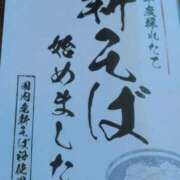 産採れたて
新そば
始めました
国内産新そば粉使用